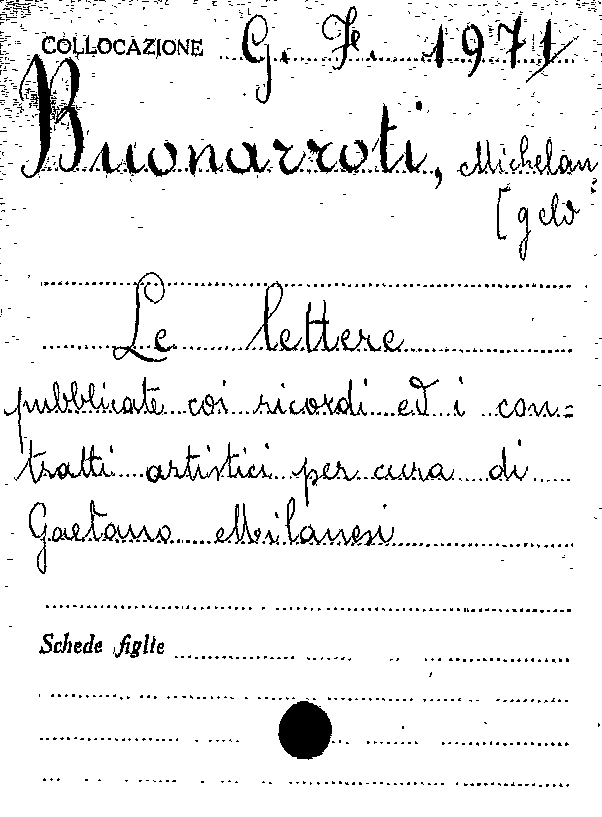 COLLOCAZIONE G. F. 1971/
Buonarroti, Michelan
[gelo
Le lettere
pubblicate coi ricordi ed i con=
tratti artistici per cura di
Gaetano Milanesi
Schede figlie